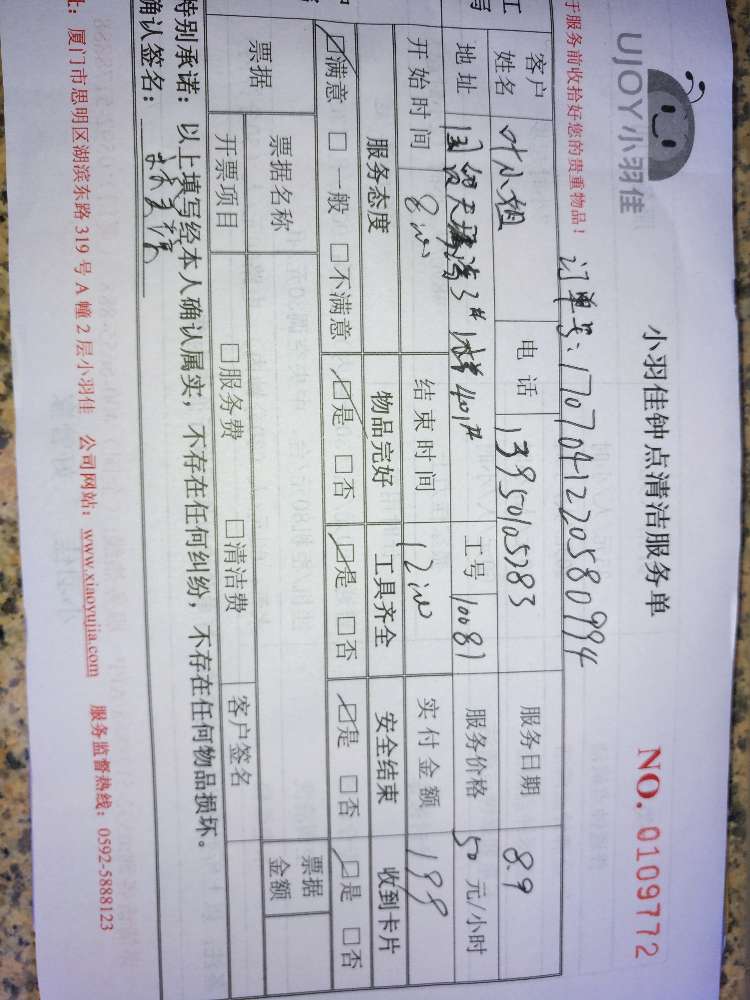 UJOY小羽佳
小羽佳钟点清洁服务单
NO. 0109772
于服务前收拾好您的贵重物品！
订单号：17070412205580994
客户姓名 叶小姐 电话 13950105283 服务日期 8.9
地址 工号 10081 服务价格 50 元/小时
开始时间 8:00 结束时间 12:00 实付金额 199
服务态度 物品完好 工具齐全 安全结束 收到卡片
☑满意 □一般 □不满意 ☑是 □否 ☑是 □否 ☑是 □否 ☑是 □否
票据 票据名称 票据金额
开票项目 □服务费 □清洁费 客户签名
特别承诺：以上填写经本人确认属实，不存在任何纠纷，不存在任何物品损坏。
确认签名：
址：厦门市思明区湖滨东路 319 号 A 幢 2 层小羽佳 公司网站：www.xiaoyujia.com 服务监督热线：0592-5888123